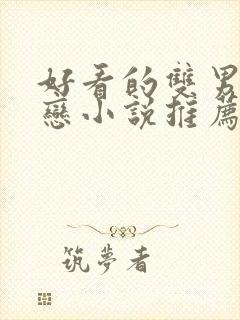 好看的雙男
戀小說推薦
筑夢者